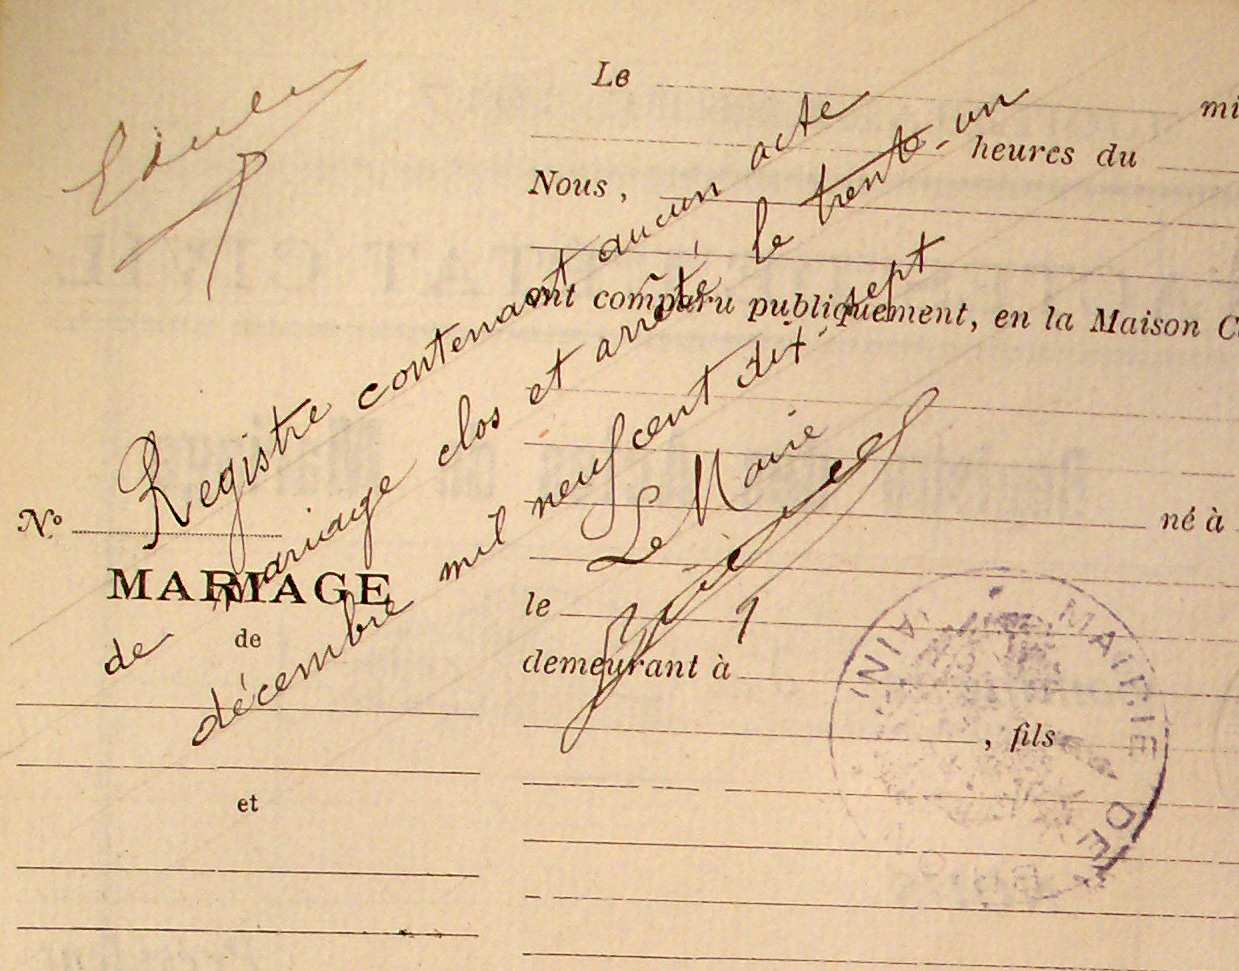 Le
mi
heures du
Nous,
ont comparu publiquement, en la Maison C
né à
le
demeurant à
, fils
N.º
MARIAGE
de
et
Registre contenant aucun acte
de mariage clos et arrêté, le trente-un
décembre mil neuf cent dix-sept
Le Maire
MAIRIE DE
(AIN)